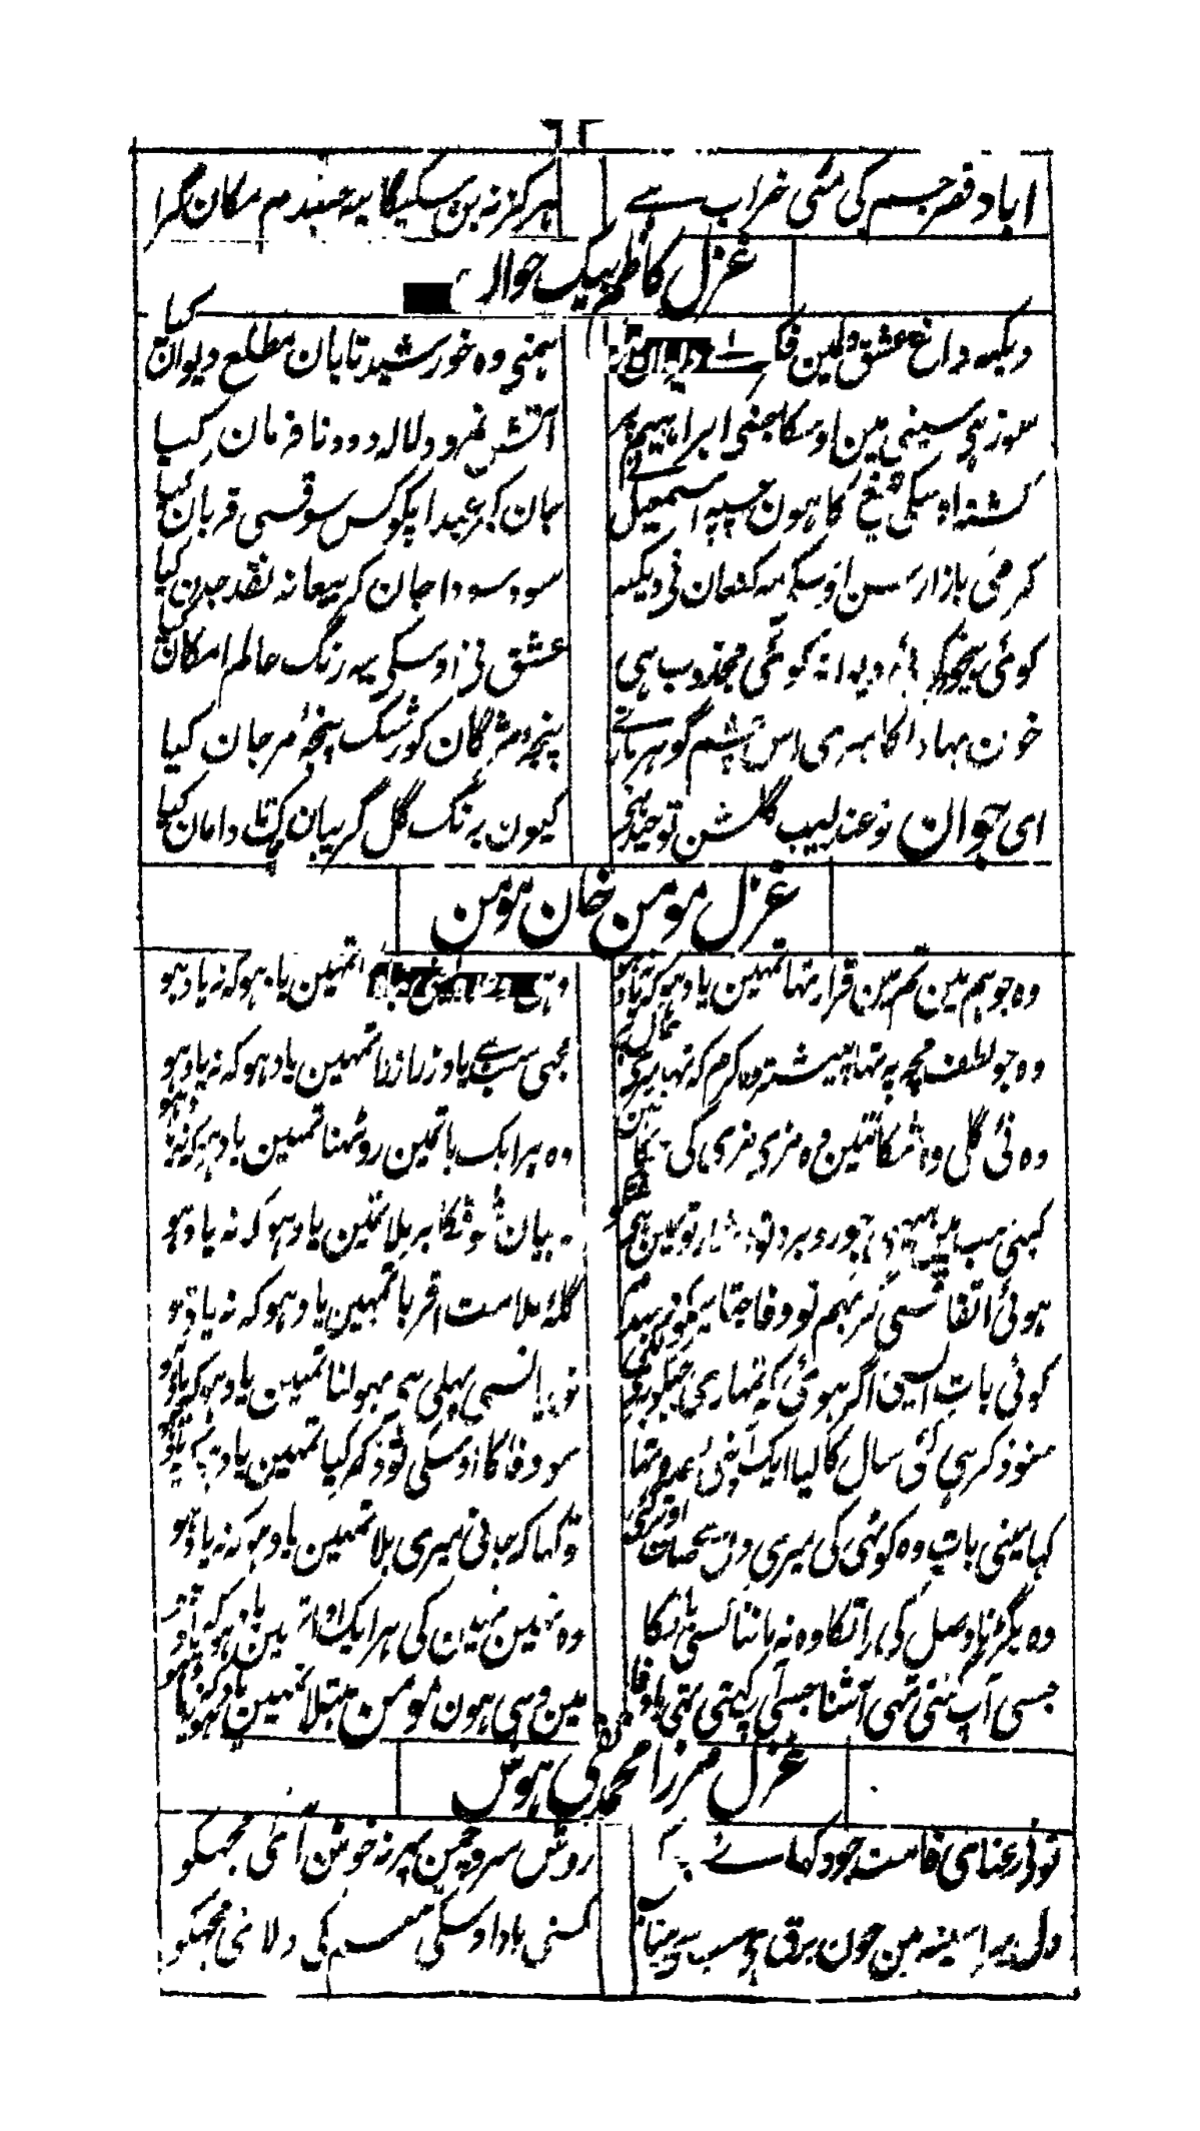 اباد قصر جسم کی مٹی خراب ہے ہرگز نہ بن سکیگا یہ منہدم مکان گرا
غزل کاظم بیک جوان
دیکہہ داغ عشق دلمین ہمنی وہ خورشید تابان مطلع دیوان کیا
سوز ہی سینی مین اوسکا جنی ابراہیم پر آتش نمرود لالہ دود نافرمان کیا
کشتہ اوسکی تیغ کا ہون جسپہ اسمعیل نے جان کر عید اپکو کس سوقسی قربان کیا
گرمی بازار حسن اوسکی مہ کنعان نی دیکہہ سود سودا جان کر بیعانہ نقد جان کیا
کوئی بیخود کوئی دیوانہ کوئی مجذوب ہی عشق نی اوسکی یہ رنگ عالم امکان کیا
خون بہا دلکا ہمہری اس چشم گوہر بار نے پنجہ مژگان کو رشک پنجہ مرجان کیا
ای جوان تو عندلیب گلشن توحید ہی کیون برنگ گل گریبان تا دامان کیا
غزل مومن خان مومن
وہ جو ہم مین تم مین قرار تہا تمہین یاد ہو کہ نہ یاد ہو وہی تمہین یاد ہو کہ نہ یاد ہو
وہ جو لطف مجہ پہ تہا پیشتر وہ کرم کہ تہا میری حال پر مجہی سب ہے یاد ذرا ذرا تمہین یاد ہو کہ نہ یاد ہو
وہ نئی گلی وہ شکائتین وہ مزی مزی کی وہ ہر ایک باتمین روٹہنا تمہین یاد ہو کہ نہ یاد ہو
کبہی سب مین جو روبرو تو اشارتو مین ہی بیان شوق کا برملا تمہین یاد ہو کہ نہ یاد ہو
ہوئی اتفاق سی گر بہم تو وفا جتانیکو دمبدم گلہ ملامت اقربا تمہین یاد ہو کہ نہ یاد ہو
کوئی بات ایسی اگر ہوئی کہ تمہاری جیکو بری لگی تو بیانسی پہلی ہی بہولنا تمہین یاد ہو کہ نہ یاد ہو
سنو ذکر ہی کئی سال کا کیا ایک آپنی وعدہ تہا سو وفا کا اوسکی تو ذکر کیا تمہین یاد ہو کہ نہ یاد ہو
کہا مینی بات وہ کوٹہی کی میری دلسی صاف اوتر گئی تو کہا کہ جانی میری بلا تمہین یاد ہو کہ نہ یاد ہو
وہ بگڑنا وصل کی راتکا وہ نہ ماننا کسی باتکا وہ نہین نہین کی ہر ایک ادا تمہین یاد ہو کہ نہ یاد ہو
جسی آپ گنتی تہی آشنا جسی آپ کہتی تہی باوفا مین وہی ہون مومن مبتلا تمہین یاد ہو کہ نہ یاد ہو
غزل مرزا محمد تقی ہوس
تونی رعنائی قامت جو دکہائے روش سرو چمن پہر نہ خوش آئی مجہکو
دل میرا سینہ مین جون برق ہی سب بیتاب کسنی یاد اوسکی تبسم کی دلائی مجہکو